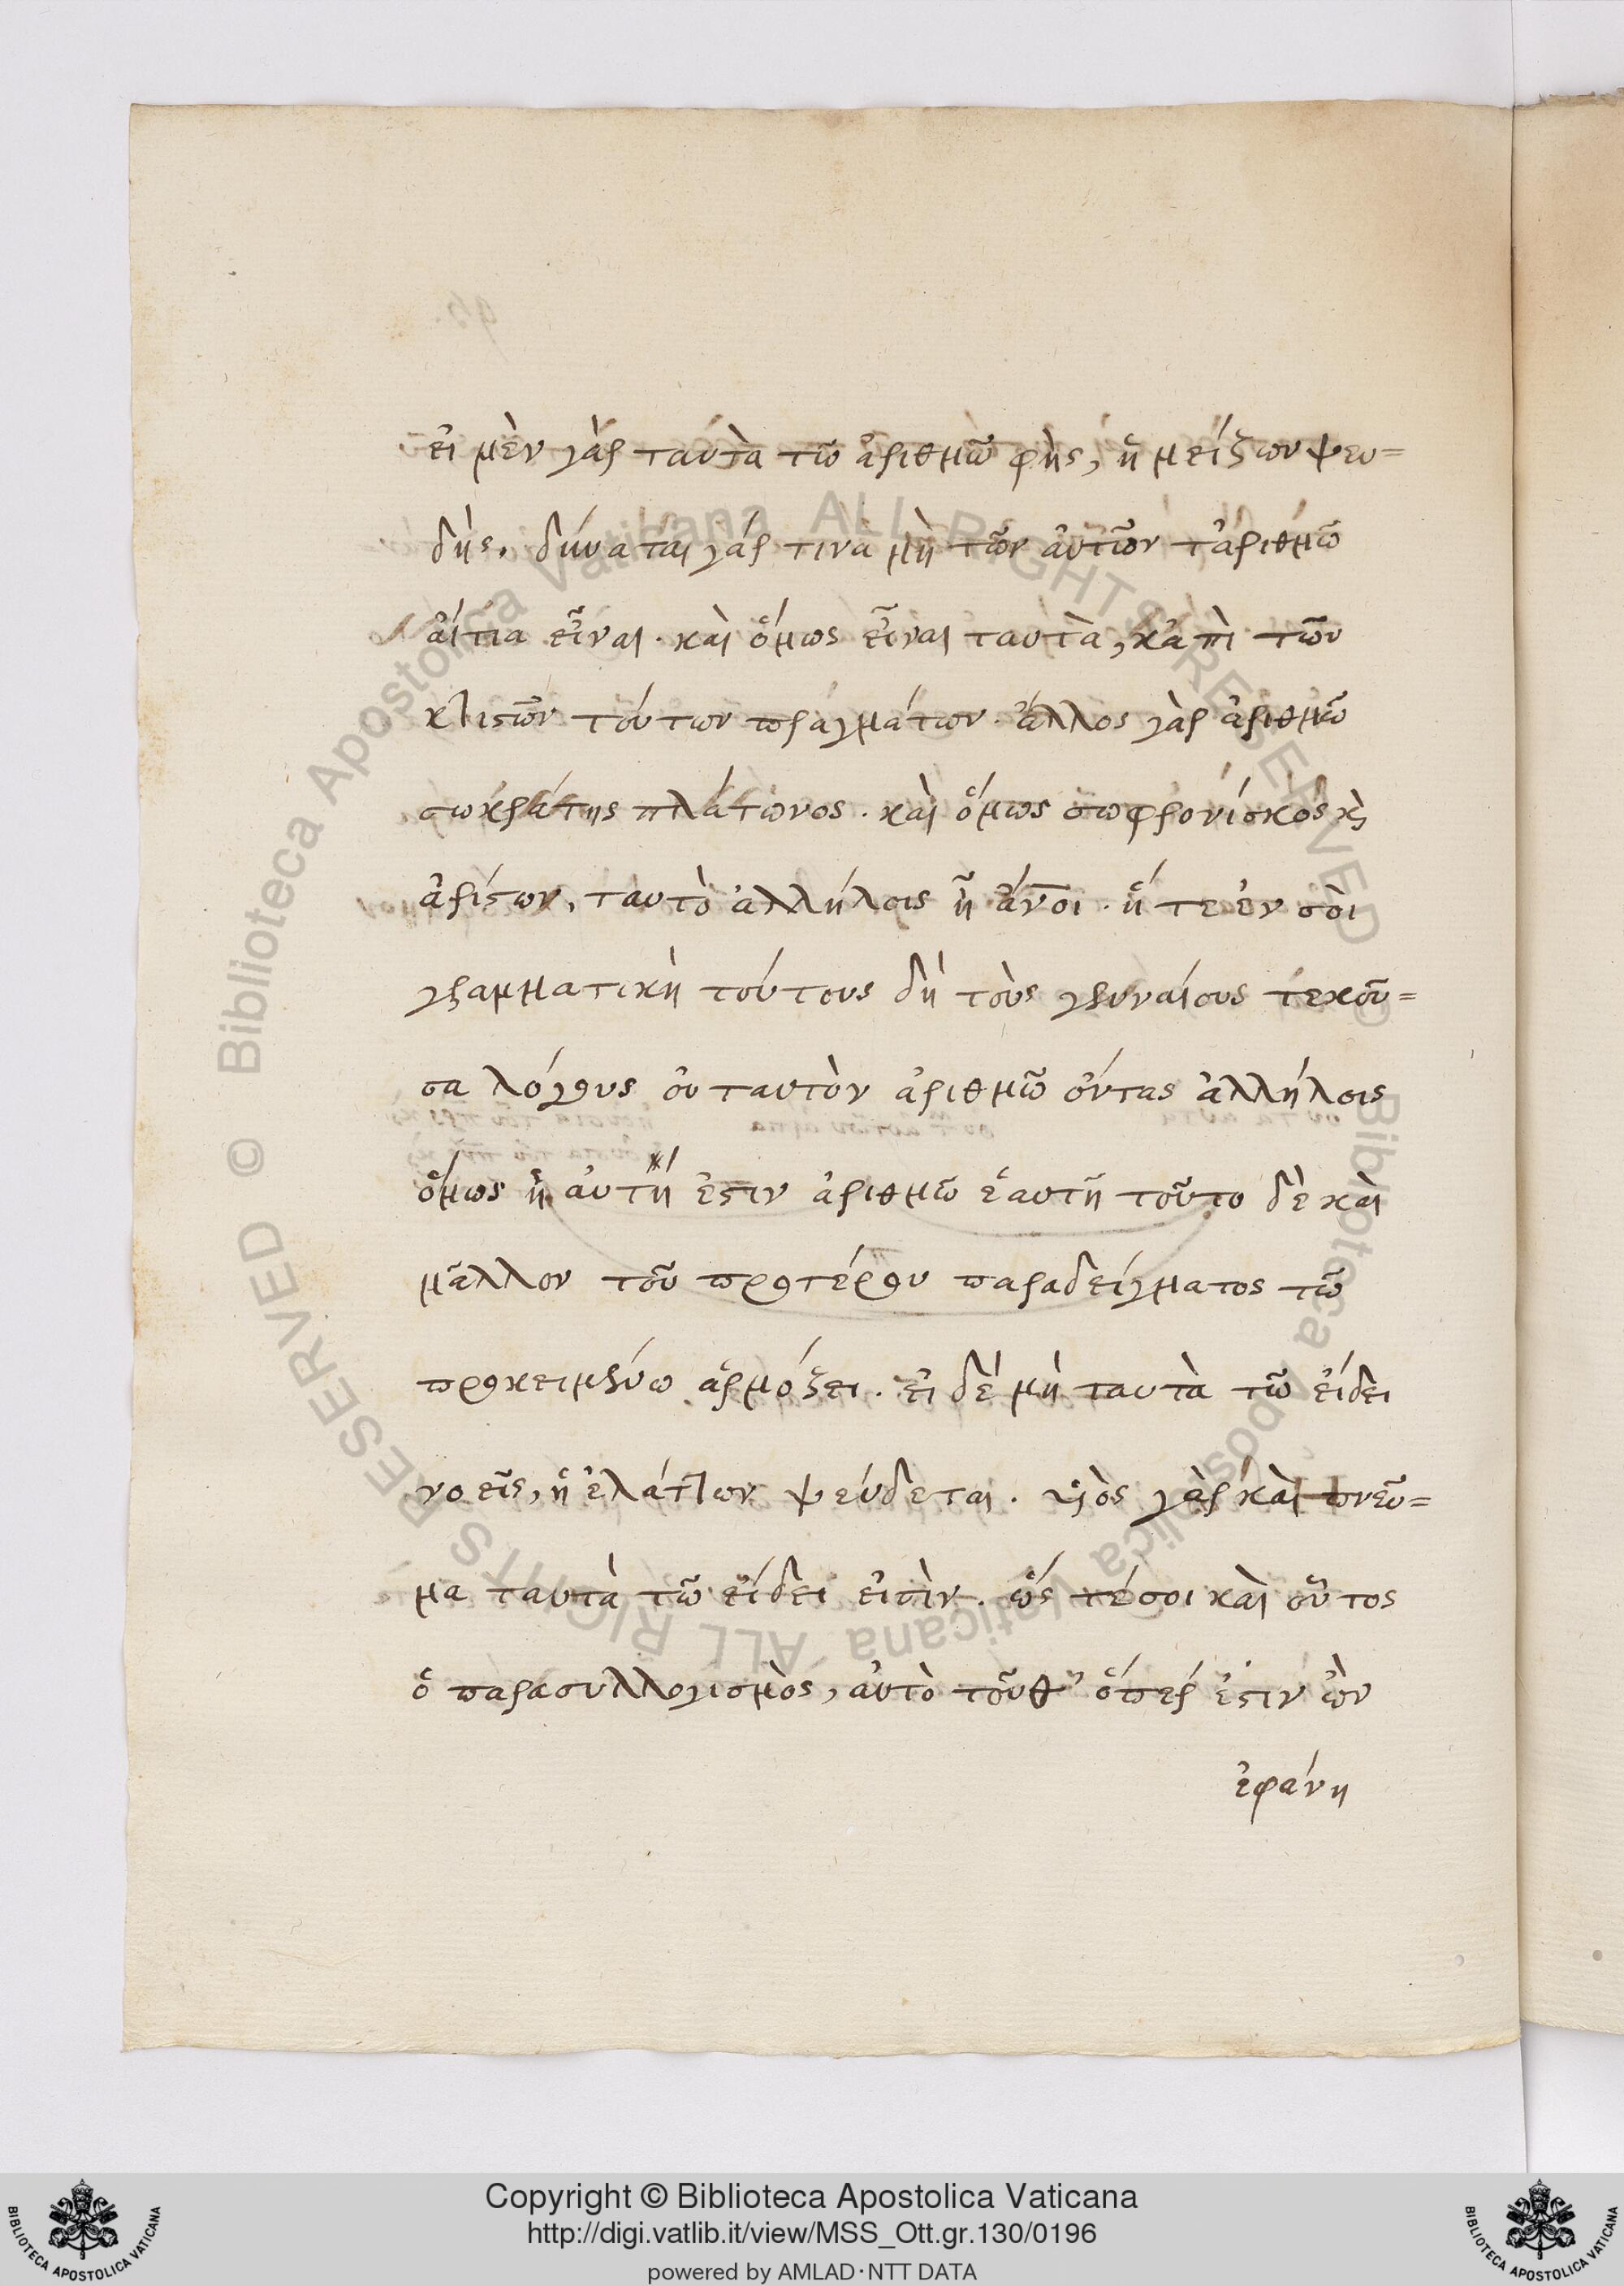 εἰ μὲν γὰρ ταὐτὰ τῶ ἀριθμῶ φὴς, ἡ μείζων ψευ=
δής. δύναται γάρ τινα μὴ τῶν αὐτῶν τἀριθμῶ
αἴτια εἶναι. καὶ ὅμως εἶναι ταυτὰ, κἀπὶ τῶν
κτιστῶν τούτων πραγμάτων. ἄλλος γὰρ ἀριθμῶ
σωκράτης πλάτωνος. καὶ ὅμως σωφρονίσκός κ
ἀρίστων, ταυτὸ ἀλλήλοις ᾗ ἄνοι. ἥ τε ἐν σοὶ
γραμματικὴ τούτους δὴ τοὺς γενναίους τεκοῦ=
σα λόγους οὐ ταυτὸν ἀριθμῶ ὄντας ἀλλήλοις
ὅμως ἡ αὐτή ἐστιν ἀριθμῶ ἑαυτῆ τοῦτο δὲ καὶ
μᾶλλον τοῦ προτέρου παραδείγματος τῶ
προκειμένω ἁρμόζει. εἰ δὲ μὴ ταυτὰ τῶ εἴδει
νοεῖς, ἡ ἐλάττων ψεύδεται. υἱὸς γὰρ καὶ πνεῦ=
μα ταυτὰ τῶ εἴδει εἰσὶν. ὥς τέ σοι καὶ οὗτος
ὁ παρασυλλογισμὸς, αὐτὸ τοῦθ' ὅπερ ἐστιν ὢν
ἐφάνη
© Biblioteca Apostolica Vaticana ALL RIGHTS RESERVED
© Biblioteca Apostolica Vaticana ALL RIGHTS RESERVED
Copyright © Biblioteca Apostolica Vaticana
http://digi.vatlib.it/view/MSS_Ott.gr.130/0196
powered by AMLAD·NTT DATA
BIBLIOTECA APOSTOLICA VATICANA
BIBLIOTECA APOSTOLICA VATICANA